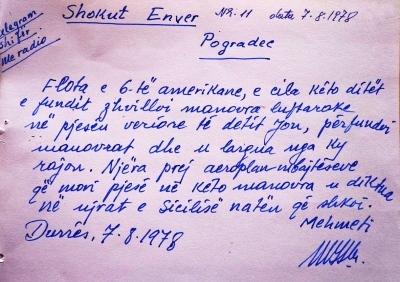 Telegram
shifër
me radio
Shokut Enver Nr. 11 data 7.8.1978
Pogradec
Flota e 6-të amerikane, e cila këto ditët
e fundit zhvilloi manovra luftarake
në pjesën veriore të detit Jon, përfundoi
manovrat dhe u largua nga ky
rajon. Njëra prej aeroplan-mbajtëseve
që mori pjesë në këto manovra u diktua
në ujrat e Sicilisë natën që shkoi.
Mehmeti
Durrës, 7.8.1978